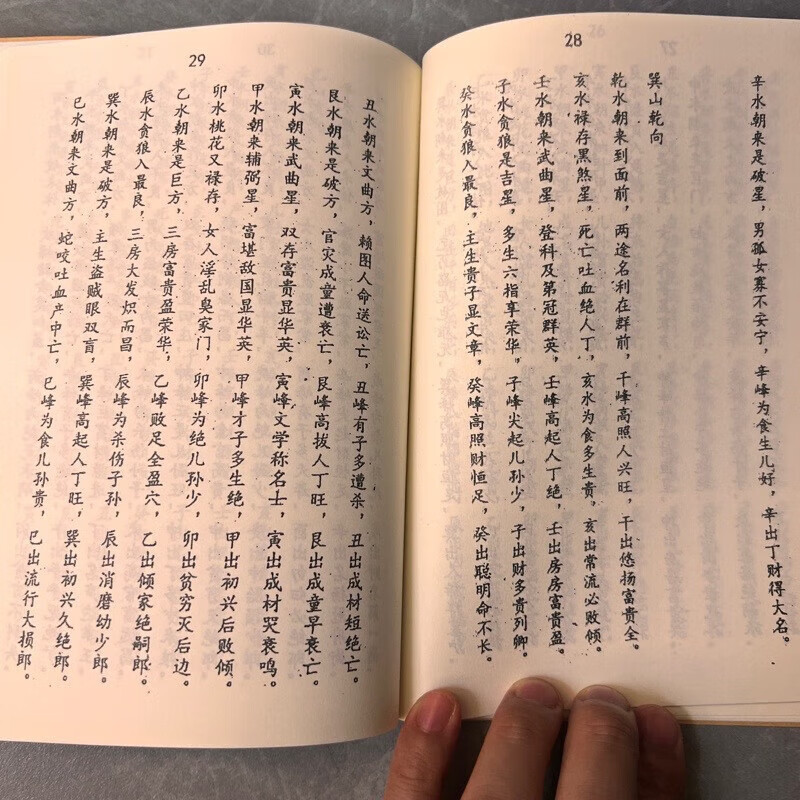 28
辛水朝来是破星，男孤女寡不安宁，辛峰为食生儿好，辛出丁财得大名。
巽山乾向
乾水朝来到面前，两途名利在群前，干峰高照人兴旺，干出悠扬富贵全。
亥水禄存黑煞星，死亡吐血绝人丁，亥水为食多生贵，亥出常流必败倾。
壬水朝来武曲星，登科及第冠群英，壬峰高起人丁绝，壬出房房富贵盈。
子水贪狼是吉星，多生六指享荣华，子峰尖起儿孙少，子出财多贵列卿。
癸水贪狼入最良，主生贵子显文章，癸峰高照财恒足，癸出聪明命不长。
29
丑水朝来文曲方，赖图人命送讼亡，丑峰有子多遭杀，丑出成材短绝亡。
艮水朝来是破方，官灾成童遭衰亡，艮峰高拔人丁旺，艮出成童早衰亡。
寅水朝来武曲星，双存富贵显华英，寅峰文学称名士，寅出成材哭衰鸣。
甲水朝来辅弼星，富堪敌国显华英，甲峰才子多生绝，甲出初兴后败倾。
卯水桃花又禄存，女人淫乱臭家门，卯峰为绝儿孙少，卯出贫穷灭后边。
乙水朝来是巨方，三房富贵盈荣华，乙峰败足全盈穴，乙出倾家绝嗣郎。
辰水贪狼入最良，三房大发炽而昌，辰峰为杀伤子孙，辰出消磨幼少郎。
巽水朝来是破方，主生盗贼眼双盲，巽峰高起人丁旺，巽出初兴久绝郎。
巳水朝来文曲方，蛇咬吐血产中亡，巳峰为食儿孙贵，巳出流行大损郎。